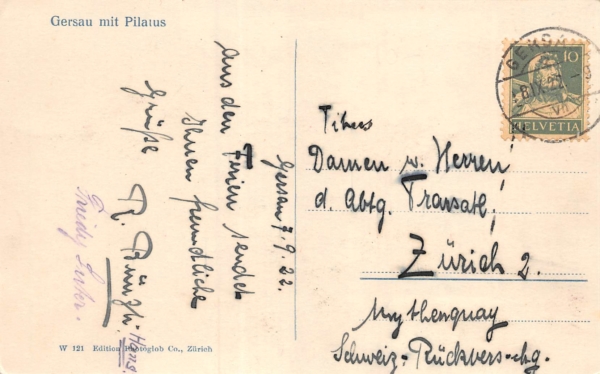 Gersau mit Pilatus
Gersau 7.9.22.
Aus den Ferien sendet
Ihnen freundliche
Grüße
R. Bünzli.
Hans
W 121 Edition Photoglob Co., Zürich
GERSAU
10
HELVETIA
Titers
Damen u. Herren
d. Abtg. Transatl.
Zürich 2.
Mythenquay
Schweiz. Rückvers-chg.